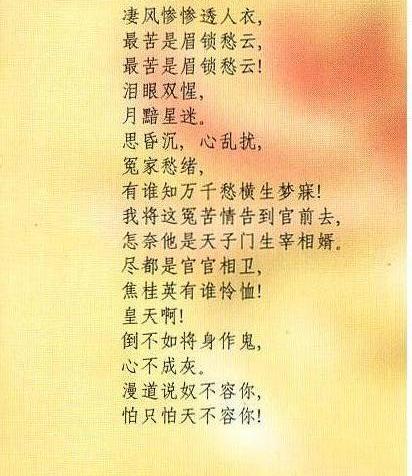 凄风惨惨透人衣,
最苦是眉锁愁云,
最苦是眉锁愁云!
泪眼双惺,
月黯星迷。
思昏沉, 心乱扰,
冤家愁绪,
有谁知万千愁横生梦寐!
我将这冤苦情告到官前去,
怎奈他是天子门生宰相婿。
尽都是官官相卫,
焦桂英有谁怜恤!
皇天啊!
倒不如将身作鬼,
心不成灰。
漫道说奴不容你,
怕只怕天不容你!